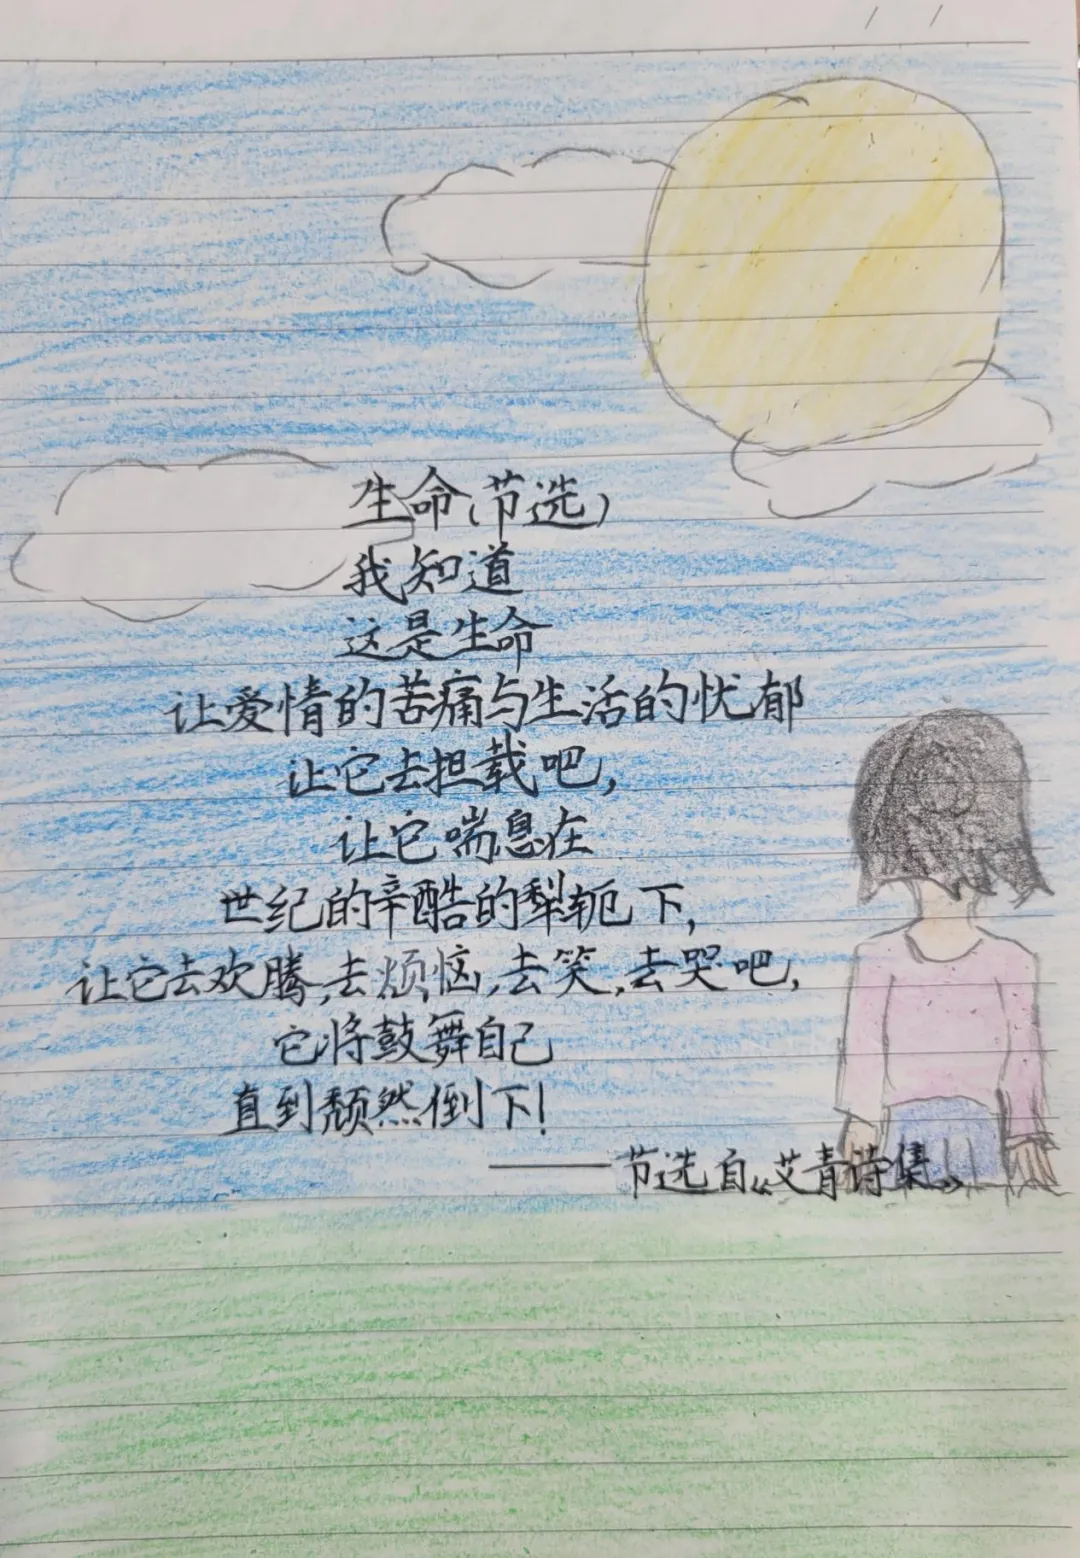 生命(节选)
我知道
这是生命
让爱情的苦痛与生活的忧郁
让它去担载吧,
让它喘息在
世纪的辛酷的犁轭下,
让它去欢腾,去烦恼,去笑,去哭吧,
它将鼓舞自己
直到颓然倒下!
——节选自《艾青诗集》